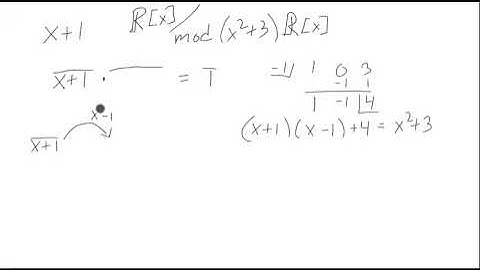 x+1 ℝ[x]/mod (x²+3)ℝ[x]
x+1 · ___ = 1
-1| 1 0 3
-1 1
1 -1 |4
(x+1)(x-1)+4 = x²+3
x-1
x+1